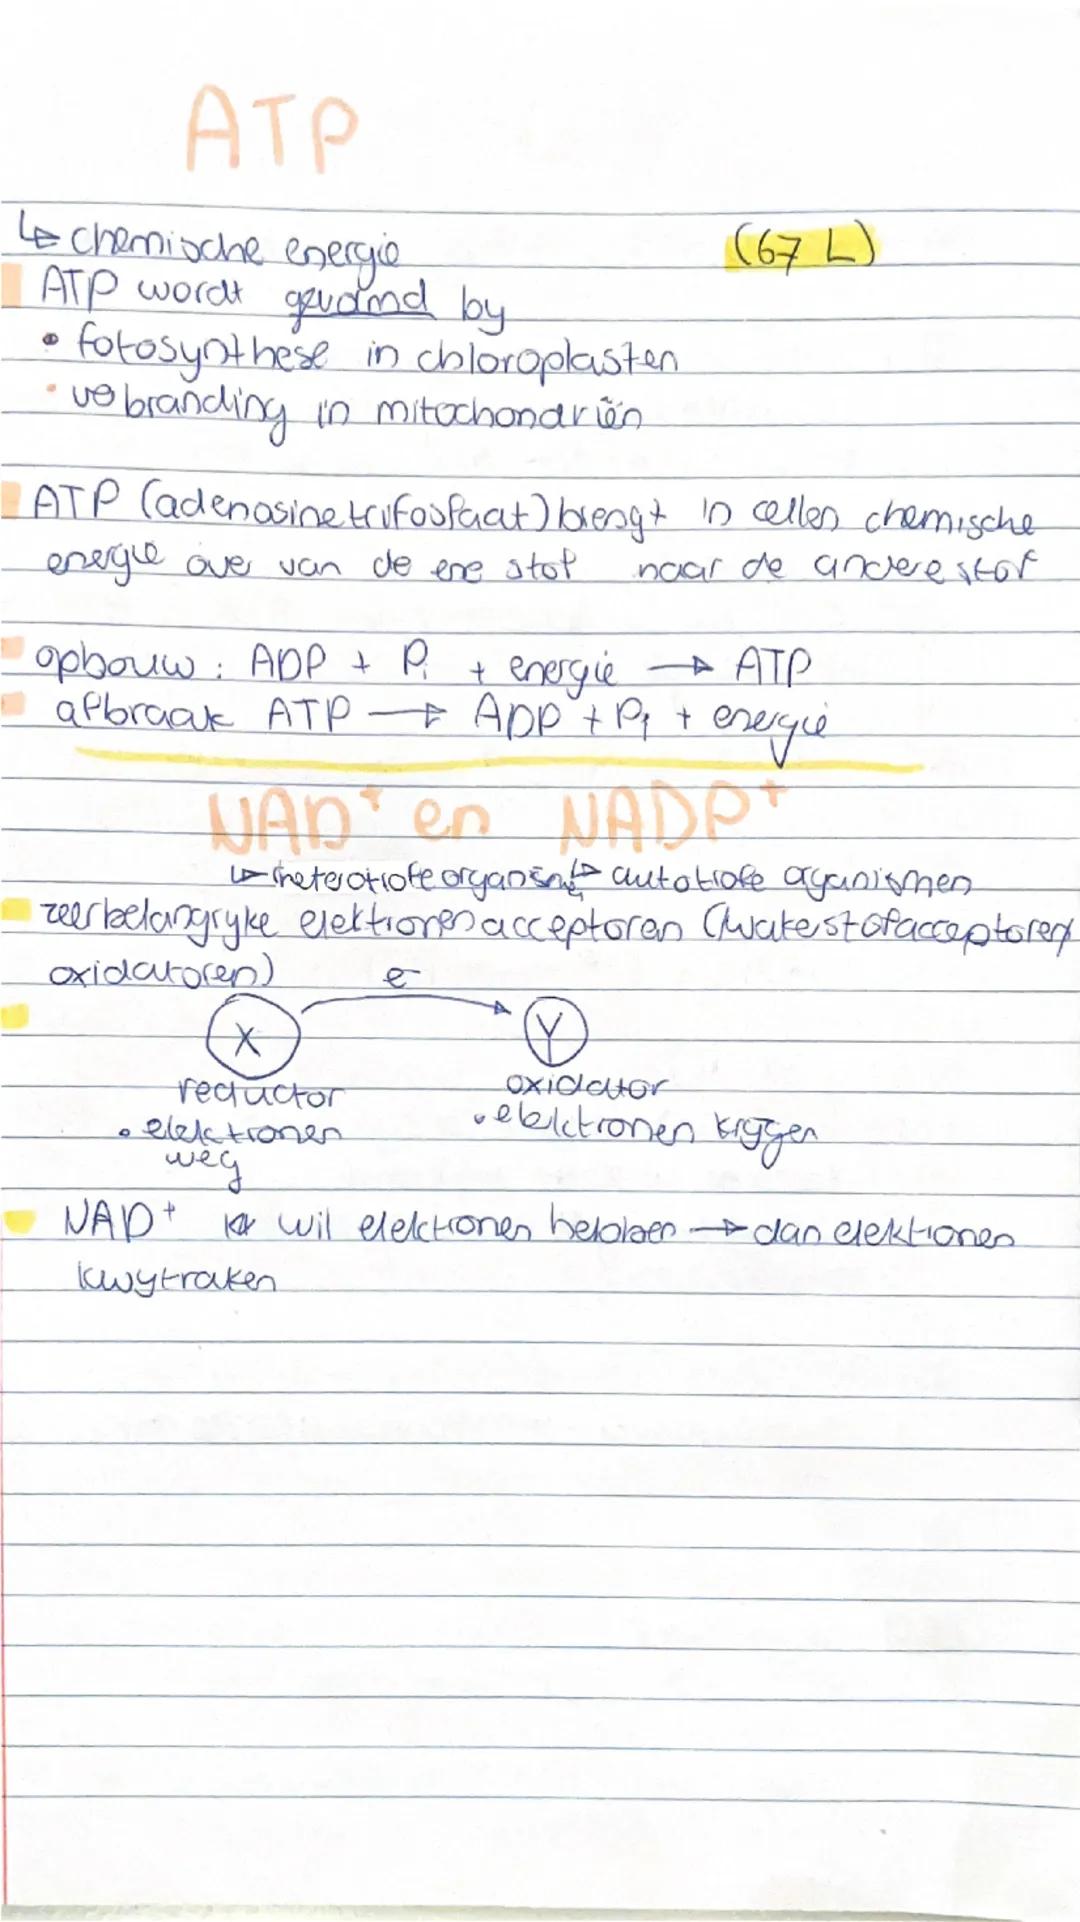 ATP
↳ chemische energie (67 L)
ATP wordt gevormd by
• fotosynthese in chloroplasten
• verbranding in mitochondriën
ATP (adenosinetrifosfaat) brengt in cellen chemische
energie over van de ene stof naar de andere stof
opbouw: ADP + Pi + energie → ATP
afbraak ATP → ADP + Pi + energie
NAD+ en NADP+
↳ heterotrofe organismen ↳ autotrofe organismen
zeer belangryke elektronenacceptoren (waterstofacceptoren/
oxidatoren) e-
X Y
reductor oxidator
• elektronen • elektronen krijgen
weg
NAD+ wil elektronen hebben → dan elektronen
kwytraken